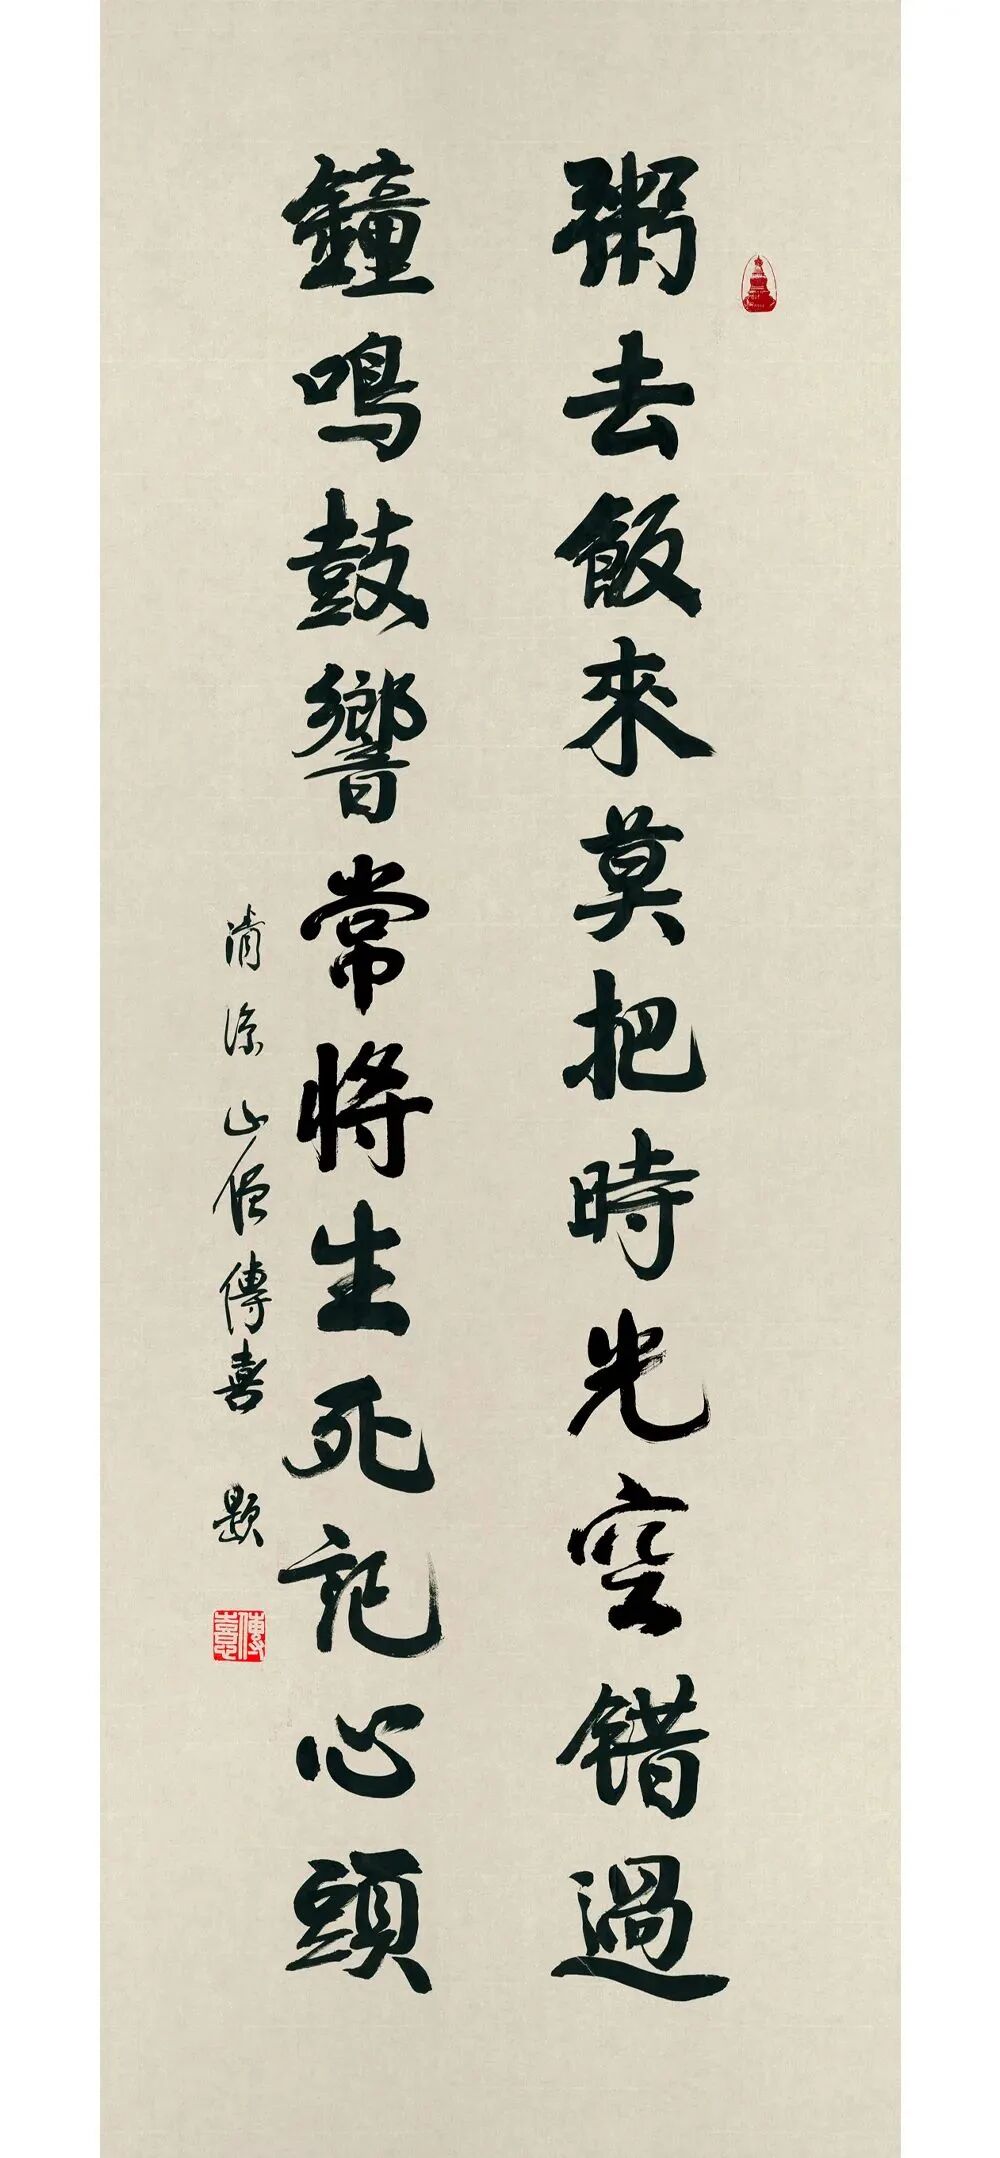 粥去飯來莫把時光空錯過
鐘鳴鼓響常將生死記心頭
清涼山僧傳喜題
傳喜